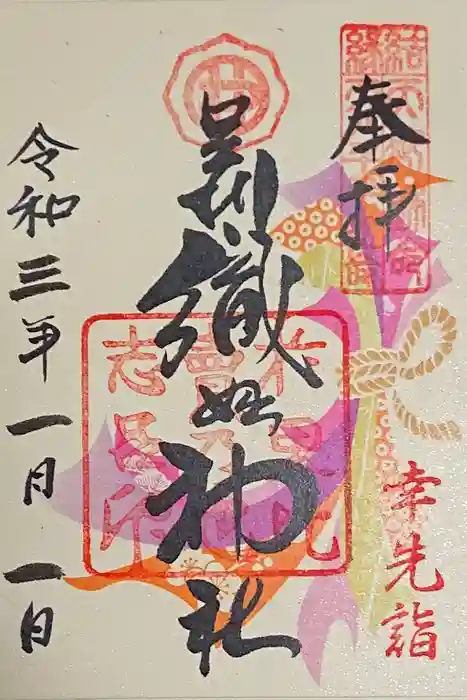 奉拝
足利織姫神社
令和三年一月一日
幸先詣